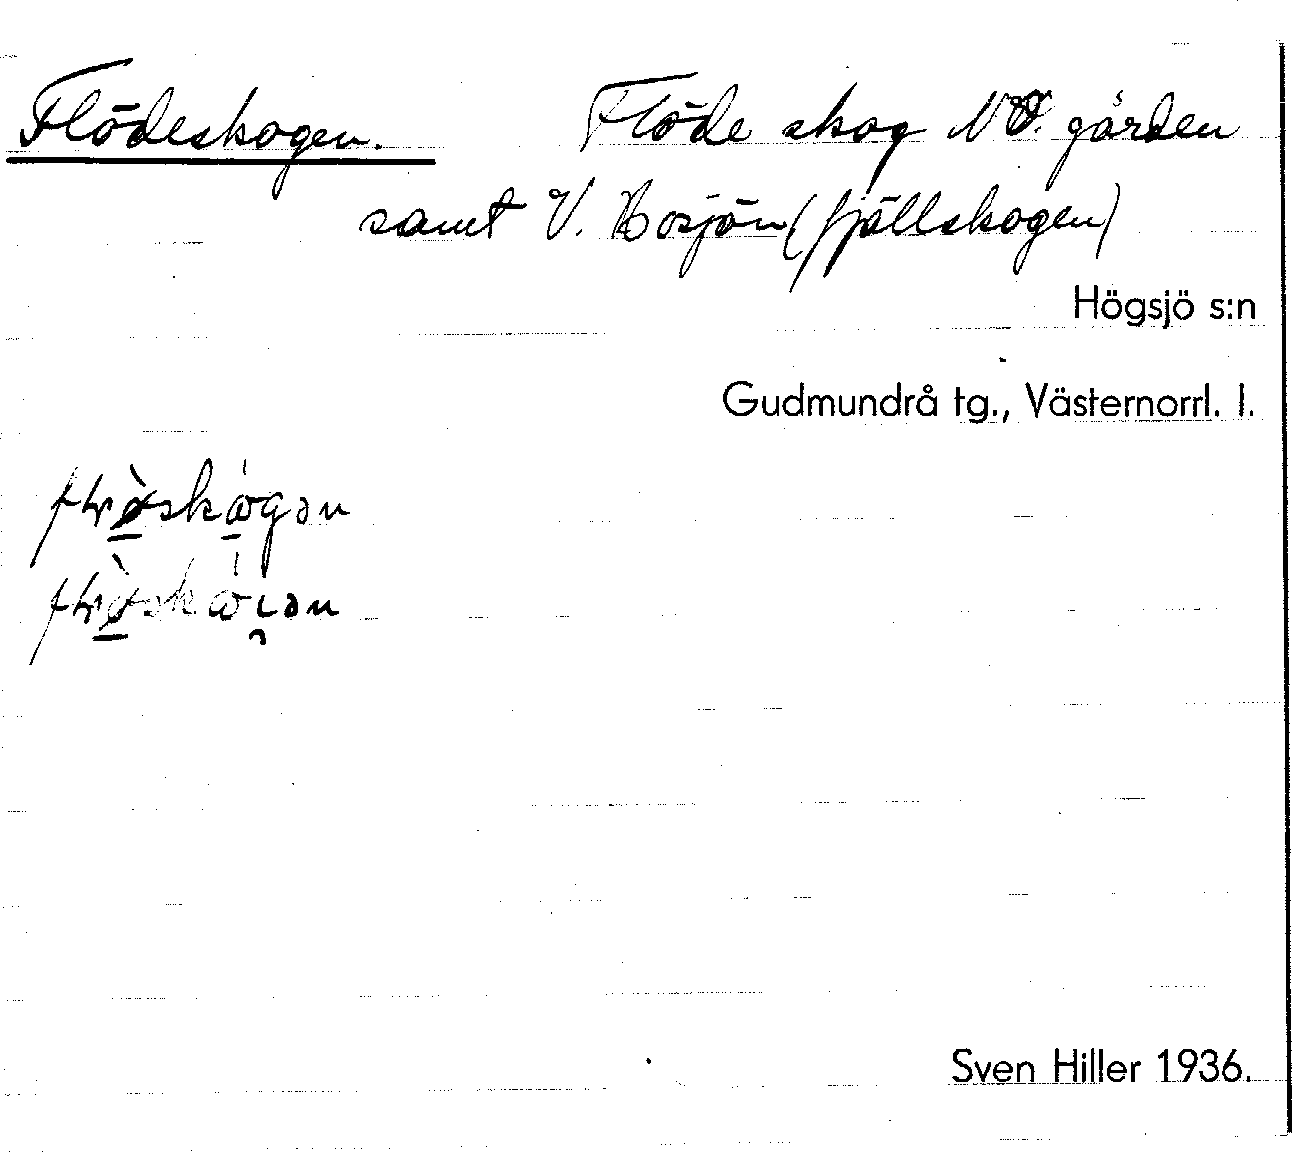 Flödeskogen. Flöde skog NO. gården
samt V. Hosjön (fjällskogen)
Högsjö s:n
Gudmundrå tg., Västernorrl. l.
Sven Hiller 1936.